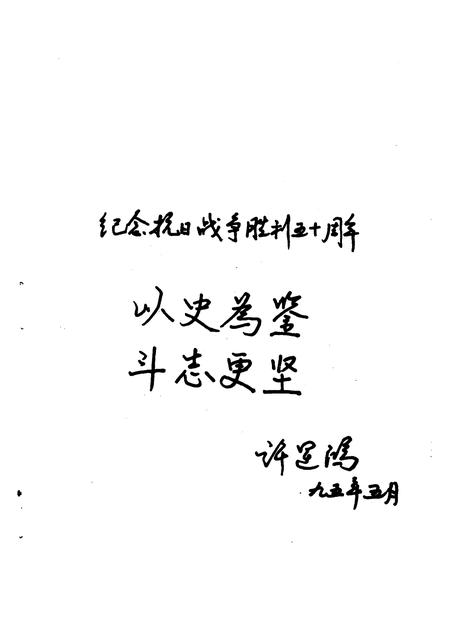 纪念抗日战争胜利五十周年
以史為鉴
斗志更坚
许运鸿
九五年五月